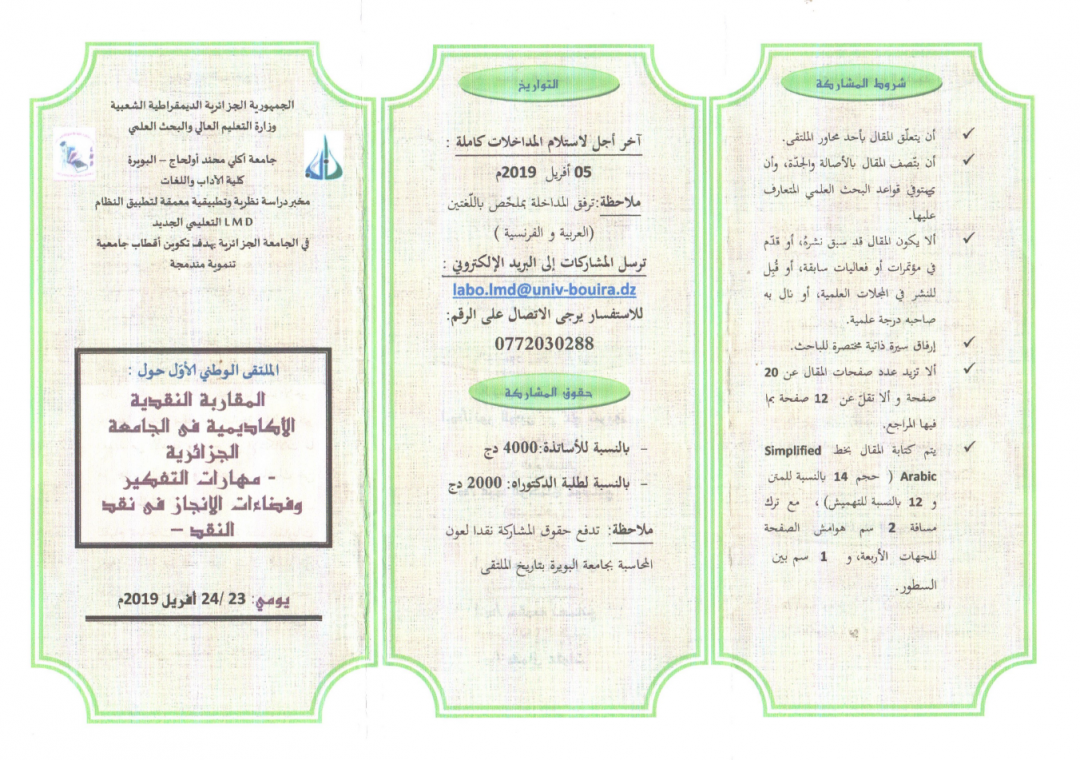 الجمهورية الجزائرية الديمقراطية الشعبية
وزارة التعليم العالي والبحث العلمي
جامعة أكلي محند أولحاج – البويرة
كلية الآداب واللغات
مخبر دراسة نظرية وتطبيقية معمقة لتطبيق النظام
التعليمي الجديد LMD
في الجامعة الجزائرية بهدف تكوين أقطاب جامعية
تنموية مندمجة
الملتقى الوطني الأوّل حول :
المقاربة النقدية
الأكاديمية في الجامعة
الجزائرية
- مهارات التفكير
وفضاءات الإنجاز في نقد
النقد –
يومي: 23 /24 أفريل 2019م
التواريخ
آخر أجل لاستلام المداخلات كاملة :
05 أفريل 2019م
ملاحظة:ترفق المداخلة بملخّص باللّغتين
(العربية و الفرنسية )
ترسل المشاركات إلى البريد الإلكتروني :
labo.lmd@univ-bouira.dz
للاستفسار يرجى الاتصال على الرقم:
0772030288
حقوق المشاركة
- بالنسبة للأساتذة:4000 دج
- بالنسبة لطلبة الدكتوراه: 2000 دج
ملاحظة: تدفع حقوق المشاركة نقدا لعون
المحاسبة بجامعة البويرة بتاريخ الملتقى
شروط المشاركة
✓ أن يتعلّق المقال بأحد محاور الملتقى.
✓ أن يتّصف المقال بالأصالة والجدّة، وأن
يستوفي قواعد البحث العلمي المتعارف
عليها.
✓ ألا يكون المقال قد سبق نشرهُ، أو قدّم
في مؤتمرات أو فعاليات سابقة، أو قُبِل
للنشر في المجلات العلمية، أو نال به
صاحبه درجة علمية.
✓ إرفاق سيرة ذاتية مختصرة للباحث.
✓ ألا تزيد عدد صفحات المقال عن 20
صفحة و ألا تقلّ عن 12 صفحة بما
فيها المراجع.
✓ يتم كتابة المقال بخط Simplified
Arabic ( حجم 14 بالنسبة للمتن
و 12 بالنسبة للتهميش) ، مع ترك
مسافة 2 سم هوامش الصفحة
للجهات الأربعة، و 1 سم بين
السطور.